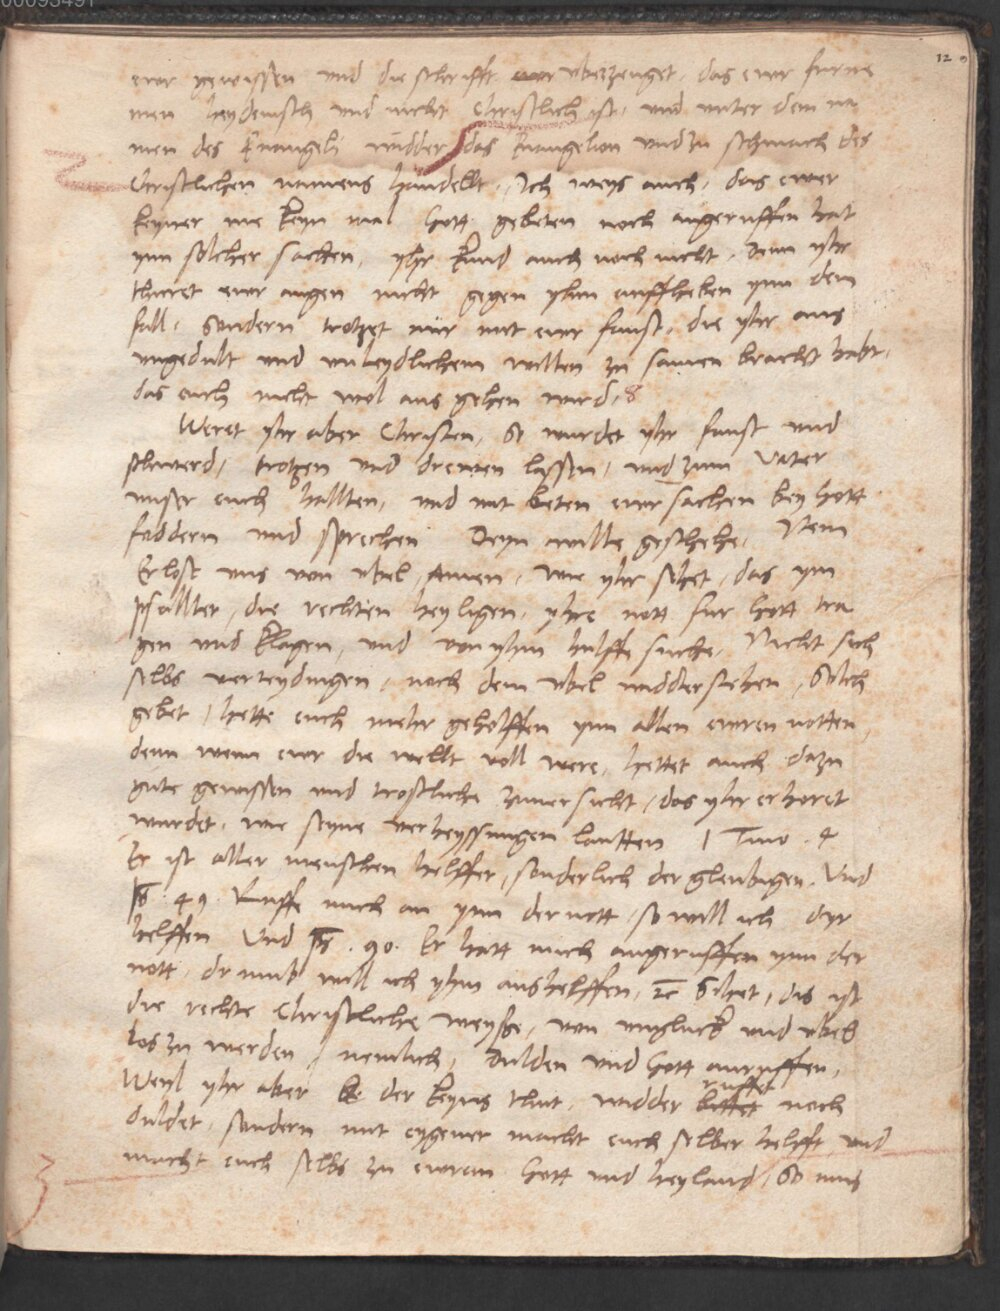 00093491
12
ewr gewissen und die schrifft ewr uberzeuget, das ewr furne
men heydenisch und nicht Christlich ist, und unter dem na
men des Euangeli widder das Euangelion und zu schmach des
Christlichen namens handellt, Ich weys auch, das ewer
keyner nie keyn mal Gott gebeten noch angeruffen hat
ynn solcher sachen, yhr kund auch noch nicht, Denn yhr
thuret ewr augen nicht gegen yhm auffheben ynn dem
fall, sondern trotzet nur mit ewr faust, die yhr aus
ungedult und unleydlichem willen zu samen bracht habt,
das euch nicht wol aus gehen wird,
Weret yhr aber Christen, so wurdet yhr faust und
schwerd, trotzen und drewen lassen, und zum Vater
unser euch hallten, und mit beten ewr sachen bey Gott
foddern und sprechen Deyn wille geschehe, Item
Erlose uns von ubel, Amen, wie yhr sehet, das ym
psallter, die rechten heyligen, yhre nott fur Gott tra
gen und klagen, und von yhm hulffe suche, Nicht sich
selbs verteydingen, noch dem ubel widderstehen, Solch
gebet, hette euch mehr geholffen ynn allen ewren notten,
denn wenn ewr die wellt voll were, hettet auch dazu
gute gewissen und trostliche zuuersicht, das yhr erhoret
wurdet, wie seyne verheyssungen lautten 1 Timo . 4
Er ist aller menschen helffer, sonderlich der gleubigen, Und
ps . 49 . Ruffe mich an ynn der nott, so will ich dyr
helffen Und ps . 90 . Er hatt mich angeruffen ynn der
nott, drumb will ich yhm aushelffen, ꝛc Sihet, dis ist
die rechte Christliche weyse, von ungluck und ubel
los zu werden, nemlich, Dulden und Gott anruffen,
ruffet
Weyl yhr aber der keyns thut, widder bittet noch
duldet, sondern mit eygener macht euch selber helfft, und
macht euch selbs zu ewrem Gott und heyland, So mus